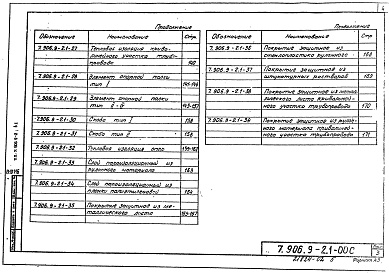 Продолжение
Обозначение Наименование Стр.
7.906.9-2.1-27 Тепловая изоляция криво-
линейного участка трубо-
провода
7.906.9-2.1-28 Элемент опорной полки
тип I
7.906.9-2.1-29 Элемент опорной полки
7.906.9-2.1-30 Скоба тип I 158
7.906.9-2.1-31 Скоба тип II
7.906.9-2.1-32 Тепловая изоляция опор
7.906.9-2.1-33 Слой пароизоляционный из
рулонного материала 163
7.906.9-2.1-34 Слой пароизоляционный из
пленки полиэтиленовой 164
7.906.9-2.1-35 Покрытие защитное из ме-
таллического листа 165-167
Продолжение
Обозначение Наименование Стр.
7.906.9-2.1-36 Покрытие защитное из
стеклопластика рулонного 168
7.906.9-2.1-37 Покрытие защитное из
штукатурных растворов 169
7.906.9-2.1-38 Покрытие защитное из метал-
лического листа криволиней-
ного участка трубопровода 170
7.906.9-2.1-39 Покрытие защитное из рулон-
ного материала криволиней-
ного участка трубопровода 171
7.906.9-2.1-00С
3
21224-02 5
Формат А3